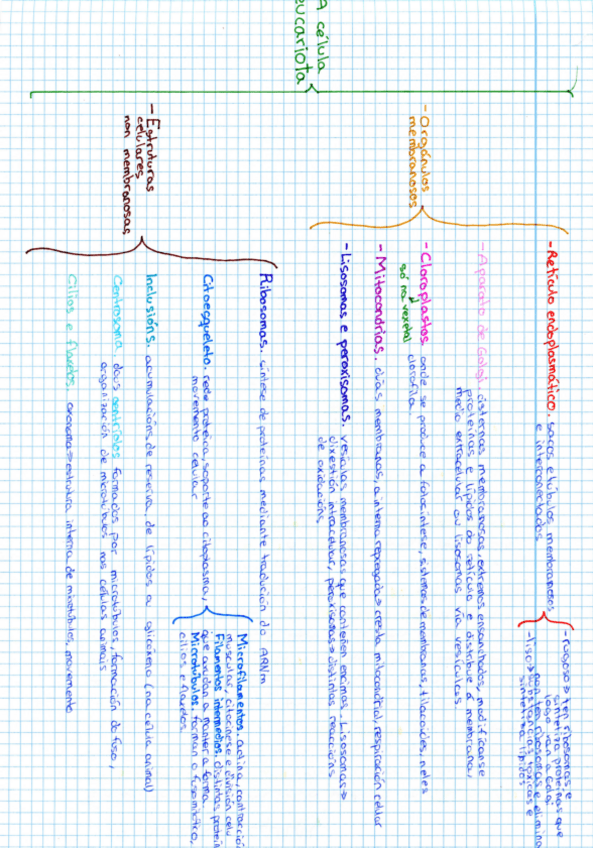 A célula
eucariota
- Orgánulos
membranosos
- Retículo endoplasmático. sacos e túbulos membranosos
e interconectados
- rugoso => ten ribosomas e
sintetiza proteínas que
logo van a Golgi
- liso => non ten ribosomas e elimina
substancias tóxicas e
sintetiza lípidos
- Aparato de Golgi. cisternas membranosas, extremos ensanchados, modifícanse
proteínas e lípidos do retículo e distribúe á membrana,
medio extracelular ou lisosomas vía vesículas
- Cloroplastos. onde se produce a fotosíntese, sistemas de membranas, tilacoides, neles
clorofila.
só na vexetal
- Mitocondrias. dúas membranas, a interna repregada => cresta mitocondrial, respiración celular
- Lisosomas e peroxisomas. vesículas membranosas que conteñen encimas. Lisosomas =>
dixestión intracelular, peroxisomas => distintas reaccións
de oxidacións
- Estruturas
celulares
non membranosas
Ribosomas. síntese de proteínas mediante tradución do ARNm
Citoesqueleto. rede proteica, soporte ao citoplasma,
movemento celular
Microfilamentos. actina, contracció
muscular, citocinese e división celu
Filamentos intermedios. distintas proteín
que axudan a manter a forma
Microtúbulos. forman o fuso mitótico,
cilios e flaxelos
Inclusións. acumulacións de reserva, de lípidos ou glicóxeno (na célula animal)
Centrosoma. dous centríolos formados por microtúbulos, formación do fuso,
organización de microtúbulos nas células animais
Cilios e flaxelos. axonema => estrutura interna de microtúbulos, movemento